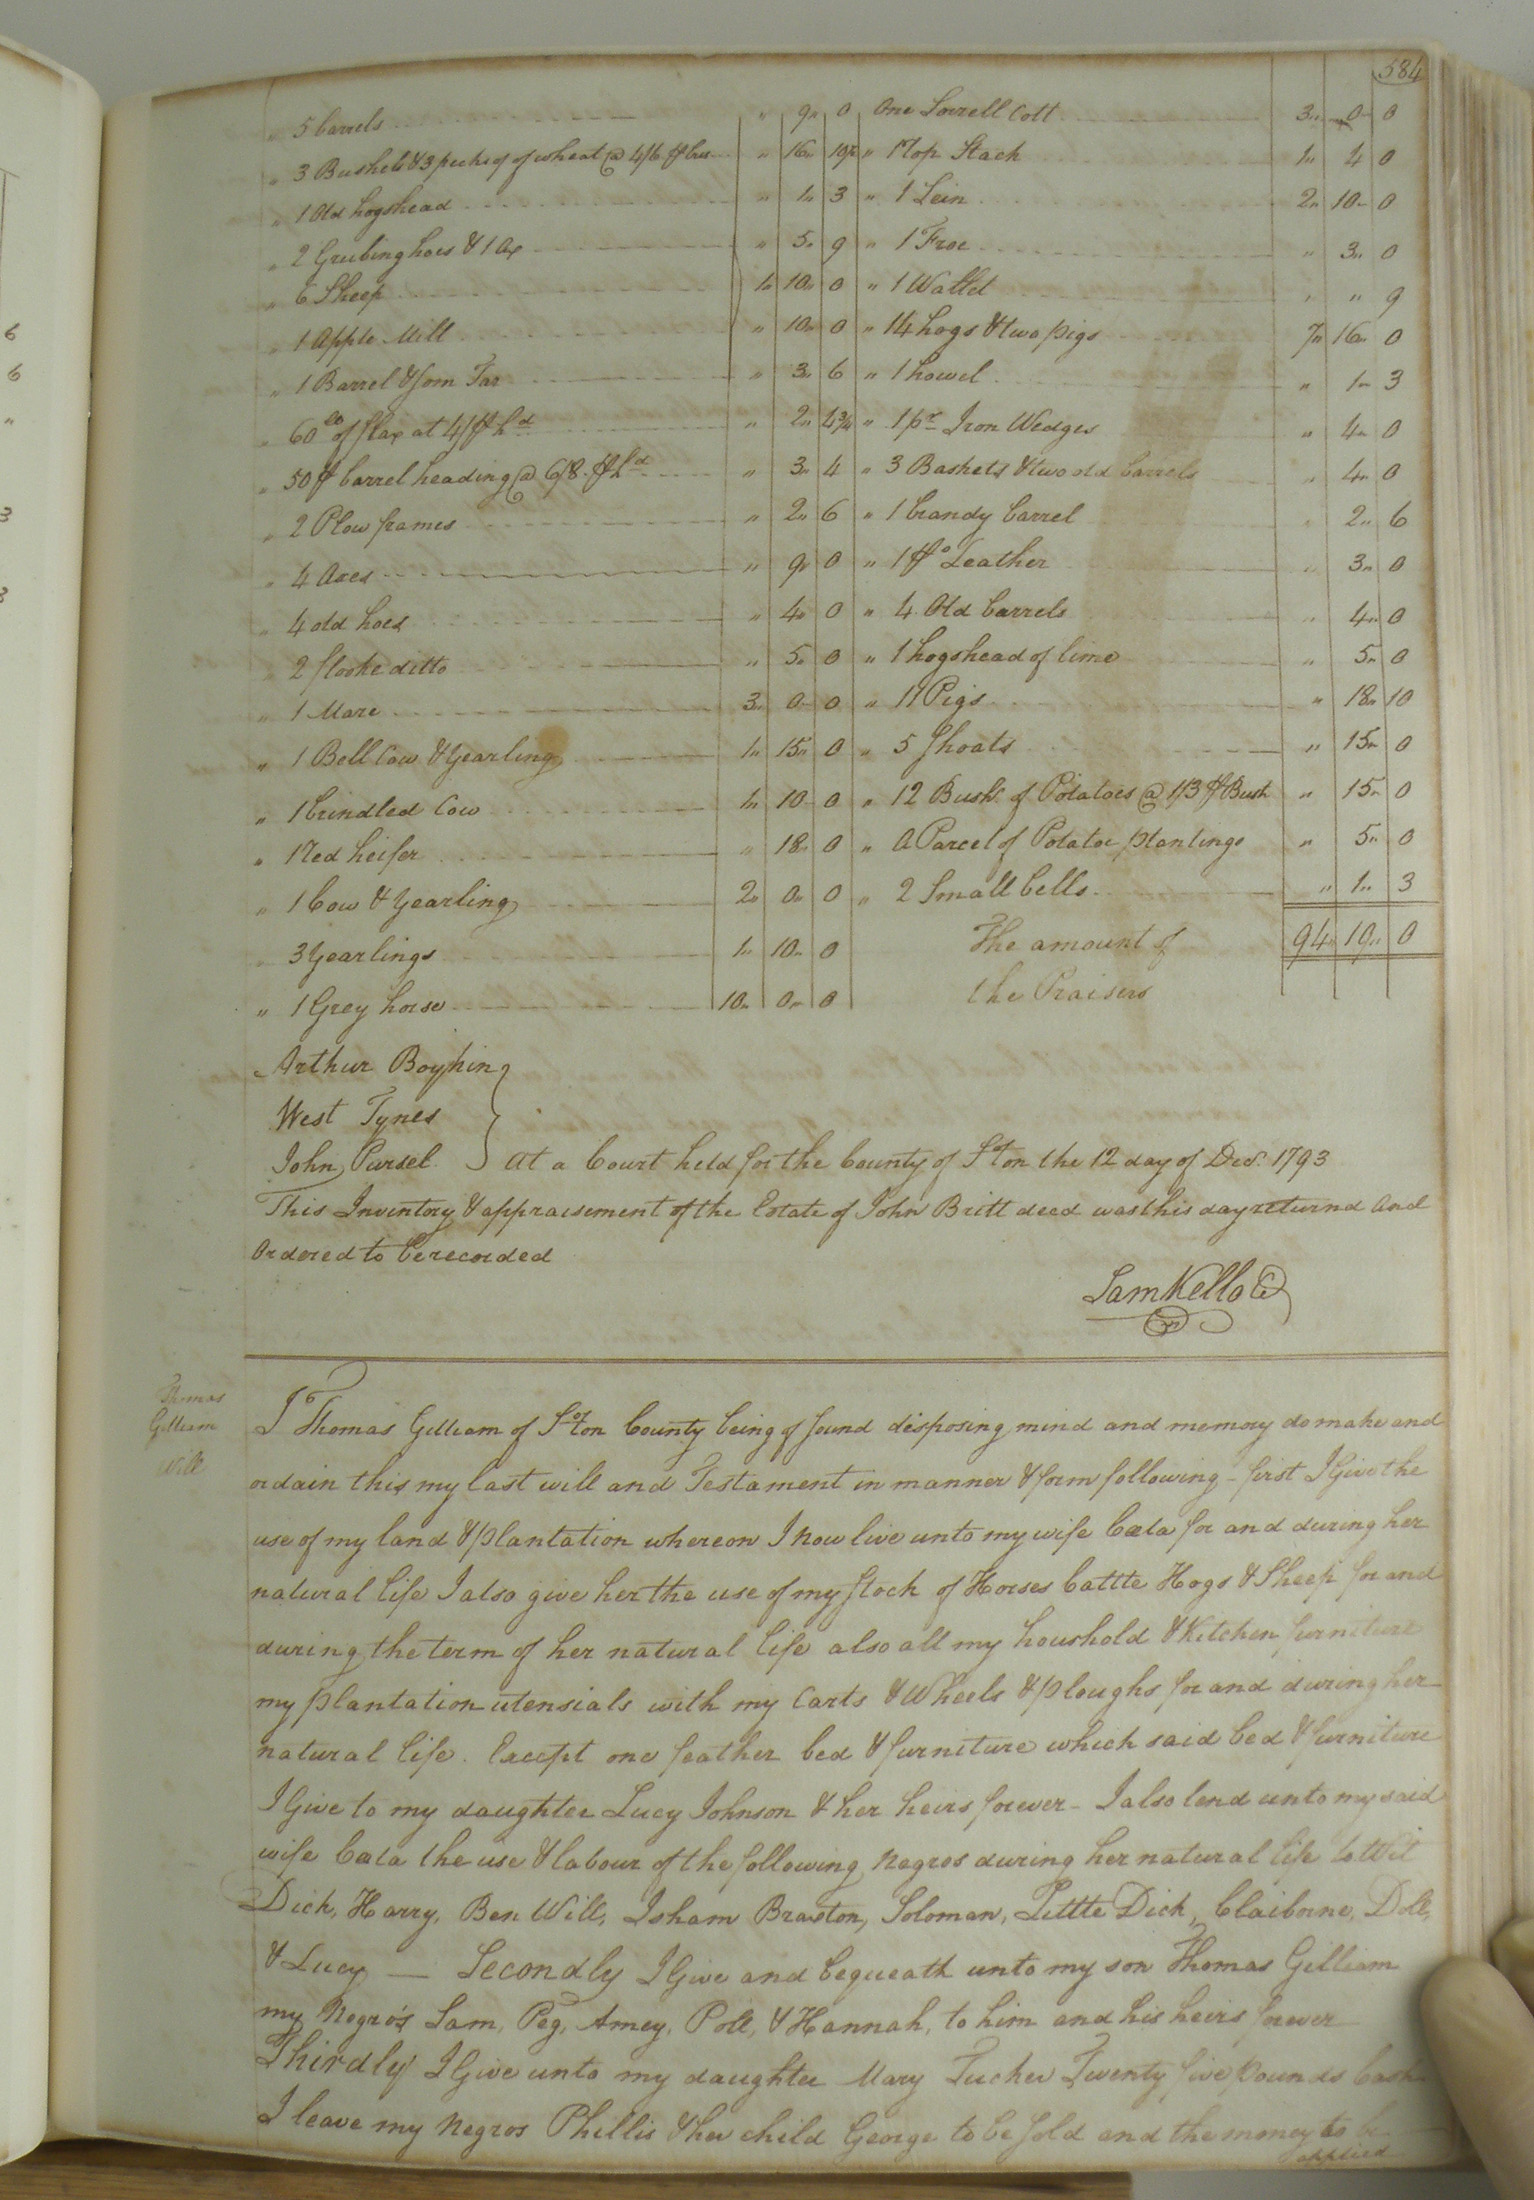 584
" 5 barrels " 9 0
" 3 Bushels & 3 pecks of wheat @ 4/6 " 16 10½
" 1 Old hogshead " 1 3
" 2 Grubing hoes & 1 Ax " 5 9
" 6 Sheep 1 10 0
" 1 Apple Mill " 10 0
" 1 Barrel & som Tar " 3 6
" 60 lb of flax at 4/ " 2 4¾
" 50 barrel heading @ 6/8 " 3 4
" 2 Plow frames " 2 6
" 4 Axes " 9 0
" 4 old hoes " 4 0
" 2 flooke ditto " 5 0
" 1 Mare 3 0 0
" 1 Bell Cow & Yearling 1 15 0
" 1 brindled Cow 1 10 0
" 1 red heifer " 18 0
" 1 Cow & Yearling 2 0 0
" 3 Yearlings 1 10 0
" 1 Grey horse 10 0 0
One Sorrell Colt 3 0 0
" 1 Top Stack 1 4 0
" 1 2 10 0
" 1 Froe " 3 0
" 1 Wallet " " 9
" 14 hogs & two pigs 7 16 0
" 1 howel " 1 3
" 1 pr Iron Wedges " 4 0
" 3 Baskets & two old barrels " 4 0
" 1 brandy barrel " 2 6
" 1 Leather " 3 0
" 4 Old barrels " 4 0
" 1 hogshead of lime " 5 0
" 11 Pigs " 18 10
" 5 shoats " 15 0
" 12 Bush. of Potatoes @ 1/3 Bush " 15 0
" A Parcel of Potatoe plantings " 5 0
" 2 Small bells " 1 3
The amount of 94 19 0
the Praisers
Arthur Boykin
West Tynes
John Pursel } At a Court held for the County of S°ton the 12 day of Decr. 1793
This Inventory & appraisement of the Estate of John Britt decd was this day returnd and
Ordered to be recorded
Sam Kello C
Thomas
Gilliam
Will
I Thomas Gilliam of S°ton County being of sound disposing mind and memory do make and
ordain this my last will and Testament in manner & form following - first I Give the
use of my land & plantation whereon I now live unto my wife Cœla for and during her
natural life I also give her the use of my stock of Horses Cattle Hogs & Sheep for and
during the term of her natural life also all my houshold & Kitchen furniture
my plantation utensials with my Carts & Wheels & ploughs for and during her
natural life. Except one feather bed & furniture which said bed & furniture
I Give to my daughter Lucy Johnson & her heirs forever - I also lend unto my said
wife Cœla the use & labour of the following Negros during her natural life to Wit
Dick, Harry, Ben Will, Isham Braxton, Soloman, Little Dick, Claiborne, Doll,
& Lucy — Secondly I Give and bequeath unto my son Thomas Gilliam
my Negro's Sam, Peg, Amey, Poll, & Hannah, to him and his heirs forever
Thirdly I Give unto my daughter Mary Tucker Twenty five pounds Cash
I leave my Negros Phillis & her child George to be sold and the money to be
applied